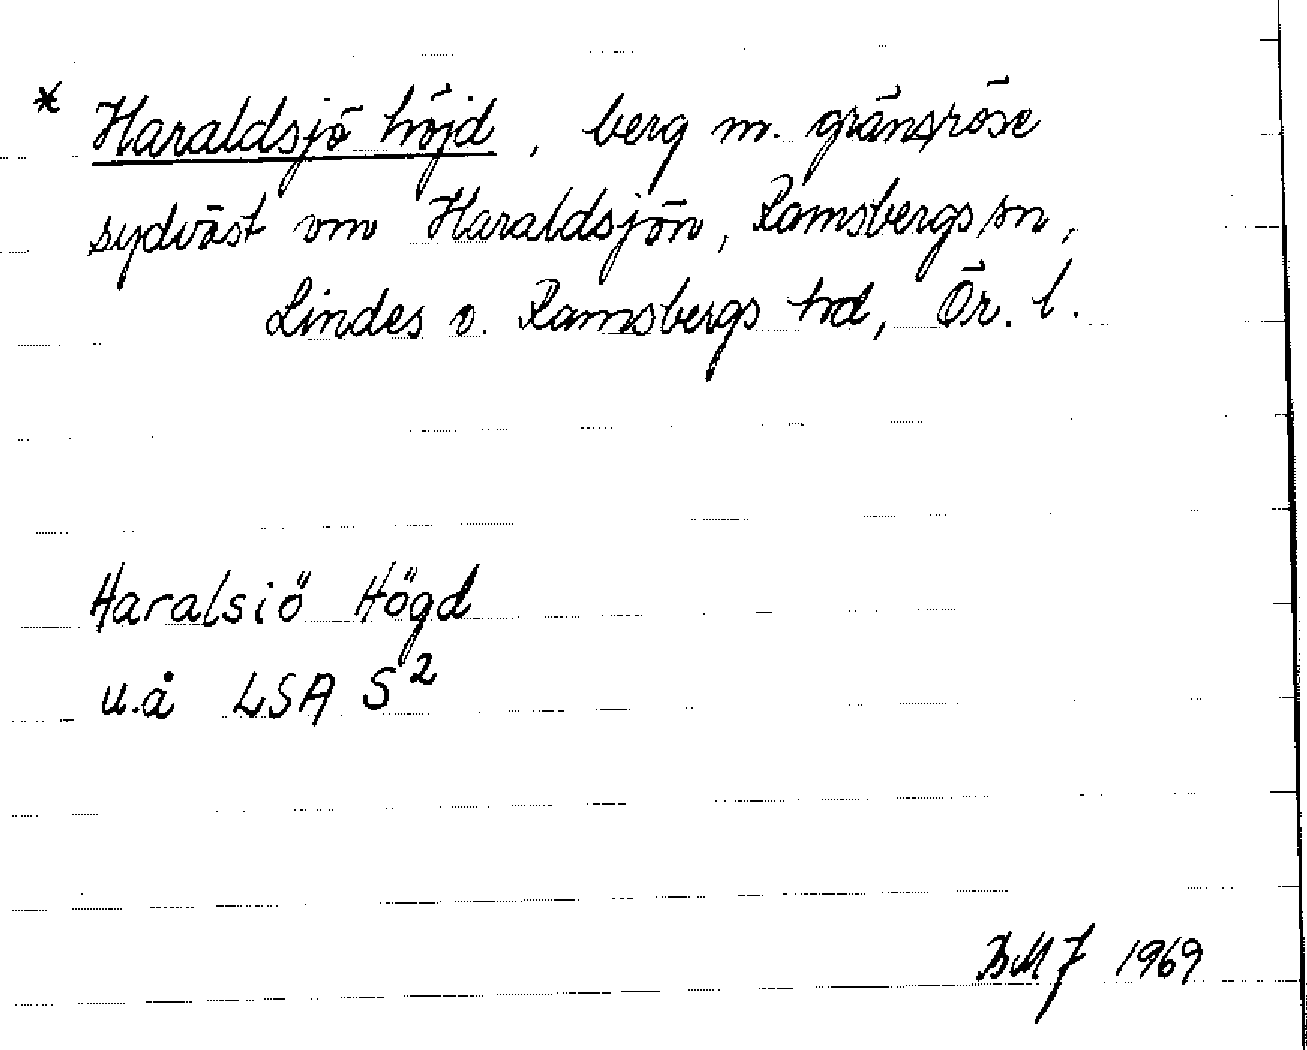 * Haraldsjö höjd, berg m. gränsröse
sydväst om Haraldsjön, Ramsbergs sn,
Lindes o. Ramsbergs hd, Ör. l.
Haralsiö Högd
u.å LSA S²
BMJ 1969